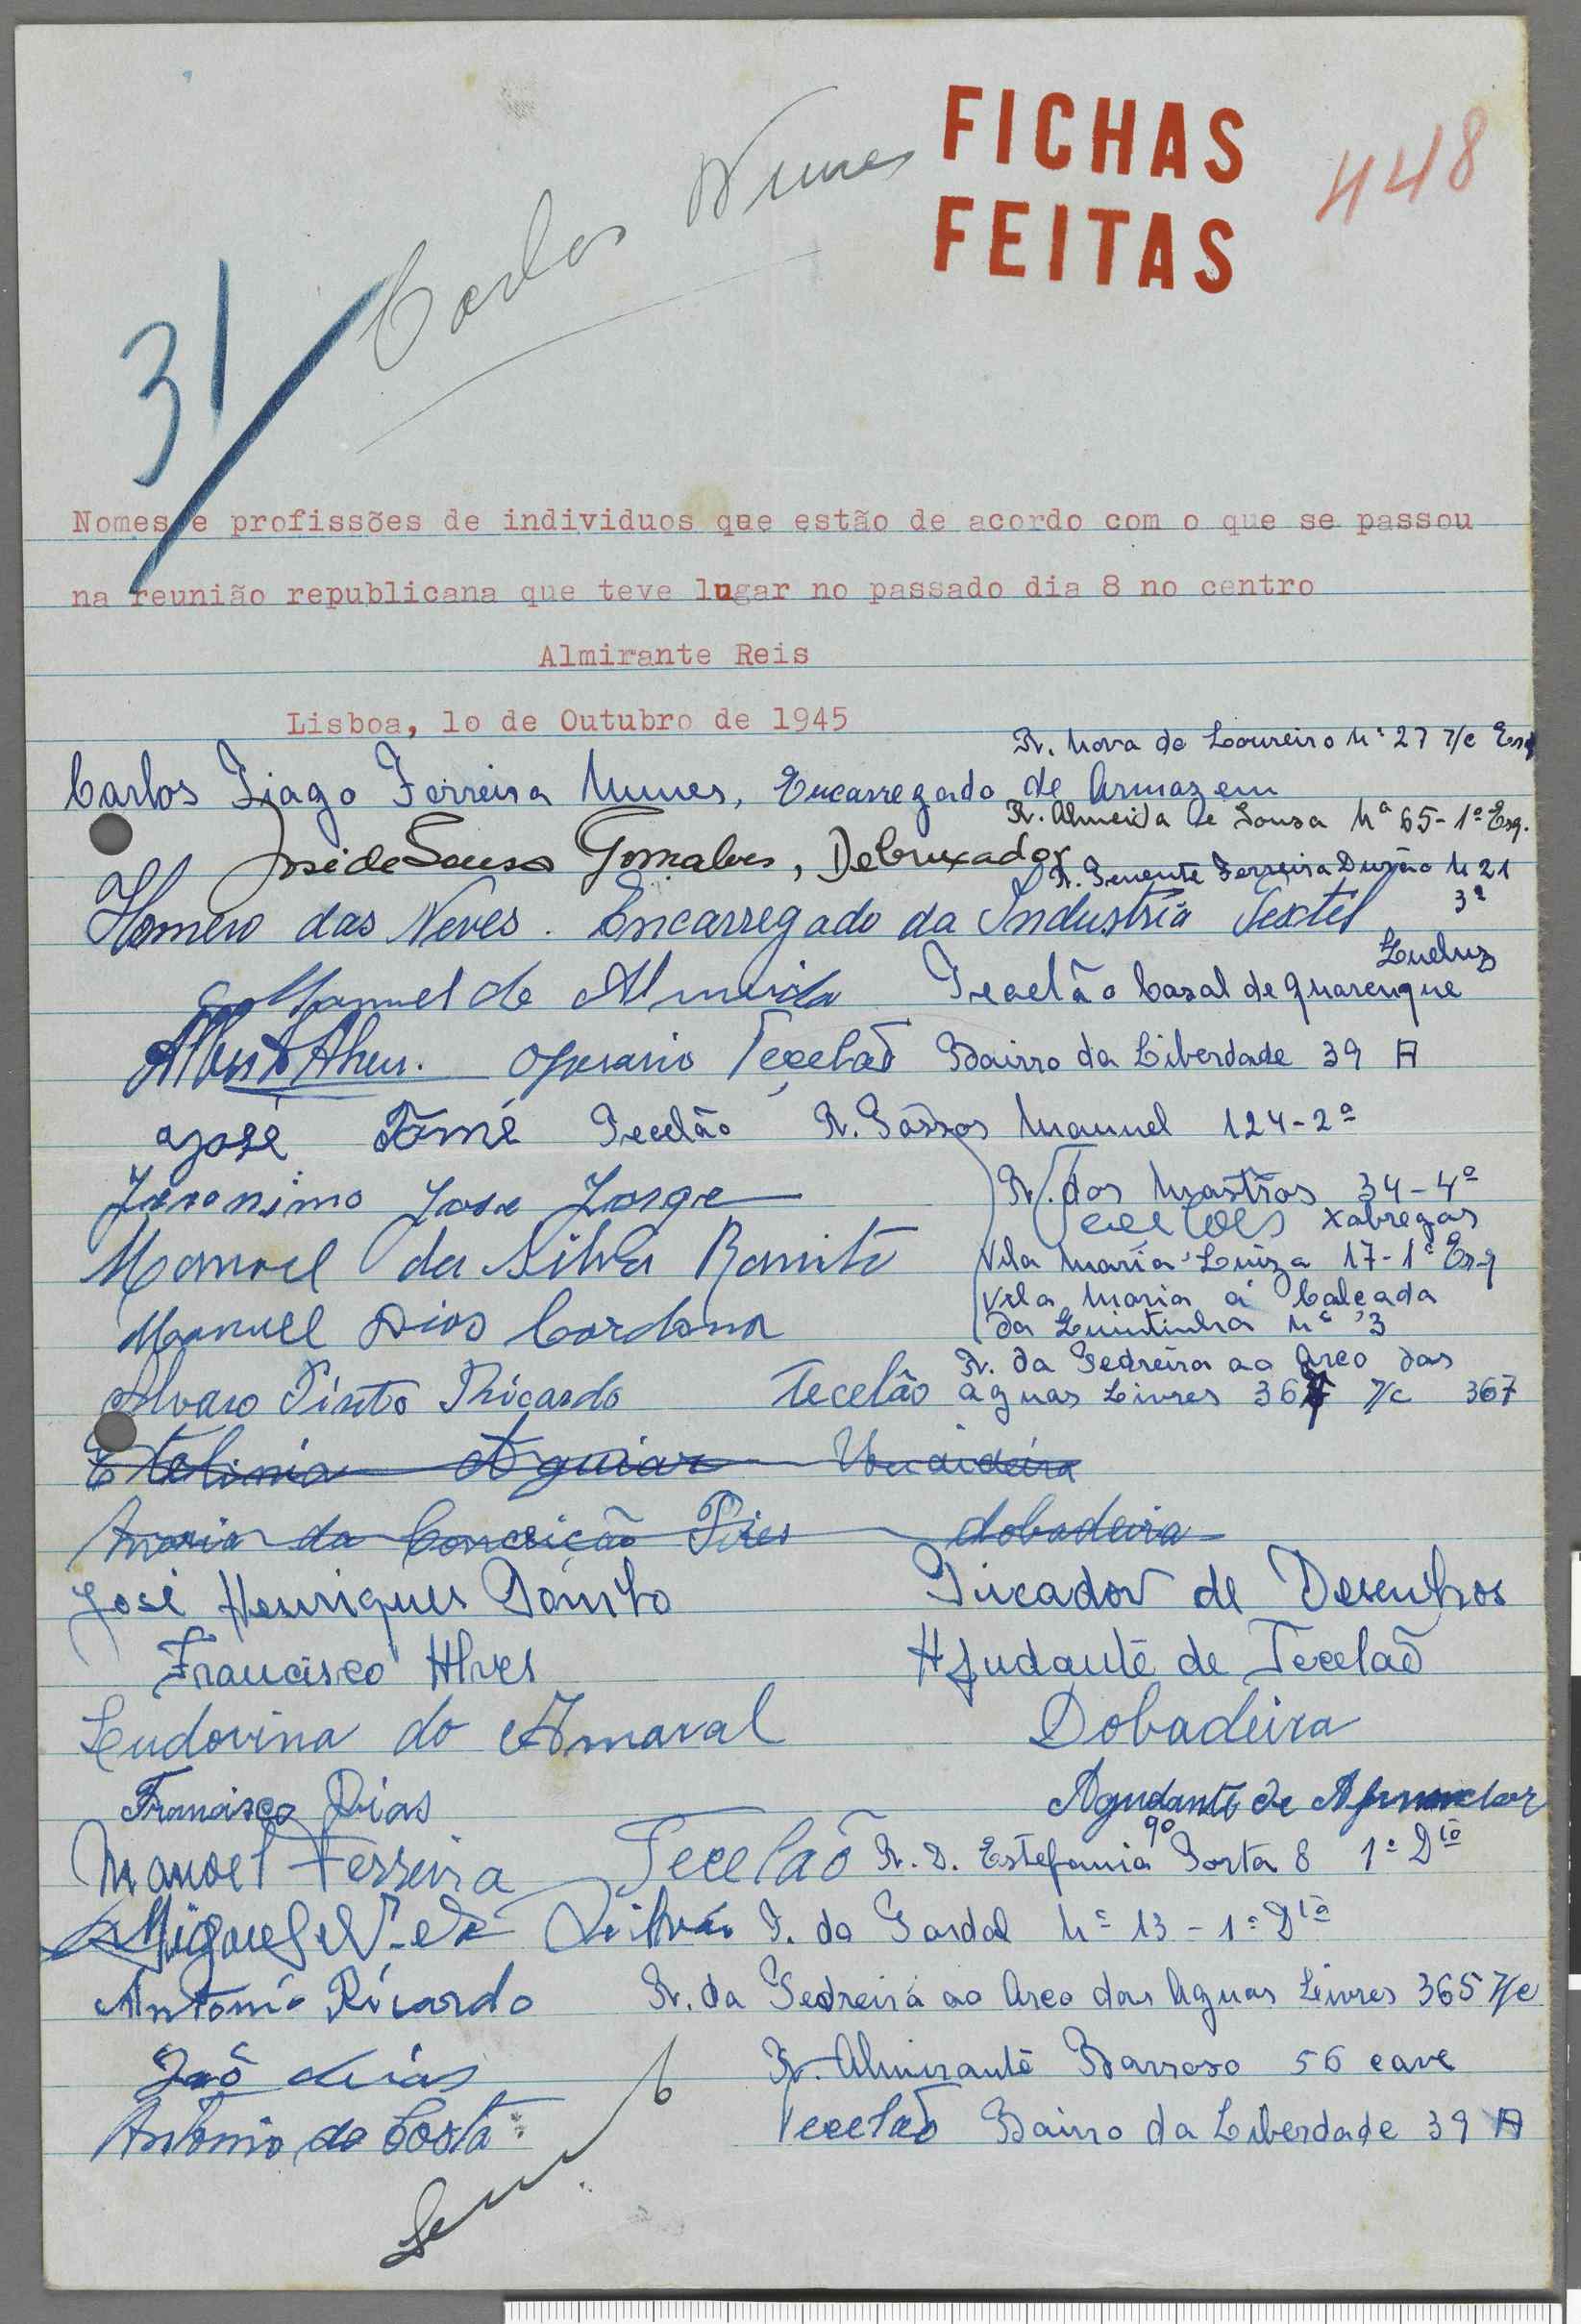 FICHAS
FEITAS
448
Carlos Nunes
31
Nomes e profissões de individuos que estão de acordo com o que se passou
na reunião republicana que teve lugar no passado dia 8 no centro
Almirante Reis
Lisboa, 10 de Outubro de 1945
R. Nova do Loureiro Nº 27 r/c Esq
Carlos Tiago Ferreira Nunes, Encarregado de Armazem
R. Almeida e Sousa Nº 65-1º Esq.
José de Sousa Gonçalves, Debuxador
R. Tenente Ferreira Durão N 21
3º
Homero das Neves. Encarregado da Industria Textil
Queluz
Manuel de Almeida Tecelão Casal de Quarenque
Operario Tecelão Bairro da Liberdade 39 A
José Tomé Tecelão R. Passos Manuel 124-2º
Jeronimo José Jorge R. dos Mastros 34-4º
Tecelões Xabregas
Manoel da Silva Vila Maria Luiza 17-1º Esq
Vila Maria á Calçada
Manuel Dias Cardoso da Quintinha Nº 3
R. da Pedreira ao Arco das
Alvaro Pinto Ricardo Tecelão Aguas Livres 367 r/c 367
Aguiar
Maria da Conceição Pires dobadeira
José Henriques Picador de Desenhos
Francisco Alves Ajudante de Tecelão
Ludovina do Amaral Dobadeira
Francisco Dias Agudante de Afinador
Manoel Ferreira Tecelão R. D. Estefania 90 Porta 8 1º Dtº
Miguel Silva T. do Pardal Nº 13-1º Dtº
Antonio Ricardo R. da Pedreira ao Arco das Aguas Livres 365 r/c
João Dias R. Almirante Barroso 56 cave
Antonio da Costa Tecelão Bairro da Liberdade 39 A